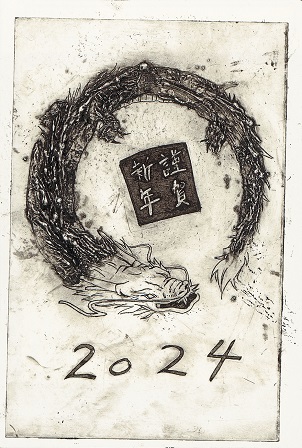 謹賀
新年
2024